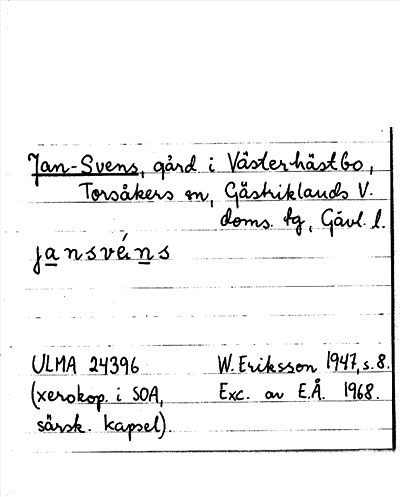 Jan-Svens, gård i Västerhästbo,
Torsåkers sn, Gästriklands V.
doms. tg, Gävl. l.
jansvéns
ULMA 24396 W. Eriksson 1947, s. 8.
(xerokop. i SOA, Exc. av E.Å. 1968.
särsk. kapsel).